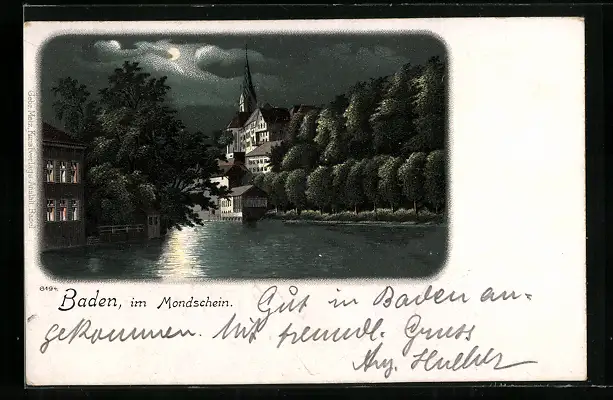 Gebr. Metz, Kunstverlags-Anstalt, Basel
6194
Baden, im Mondschein.
Gut in Baden an-
gekommen. Mit freundl. Gruss
Aug.